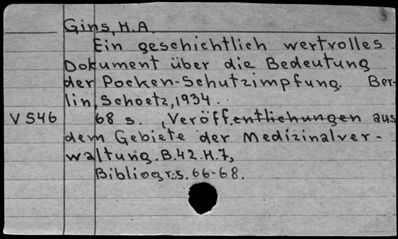 Gins, H.A.
Ein geschichtlich wertvolles
Dokument über die Bedeutung
der Pocken-Schutzimpfung. Ber-
lin, Schoetz, 1934.
V 546 68 s. , Veröffentlichungen aus
dem Gebiete der Medizinalver-
waltung. B.42.H.7,
Bibliogr. s. 66-68.